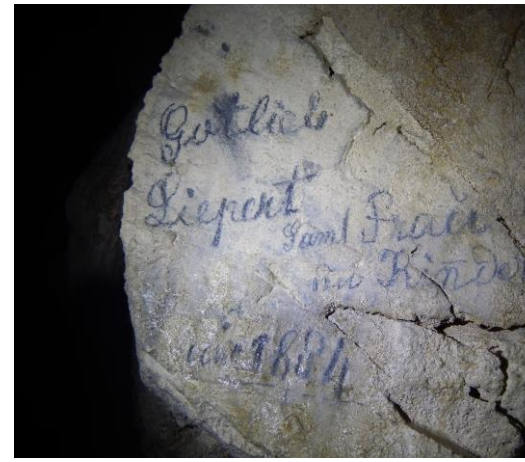 Gotlieb
Liepert
samt Frau
un Kinder
1884